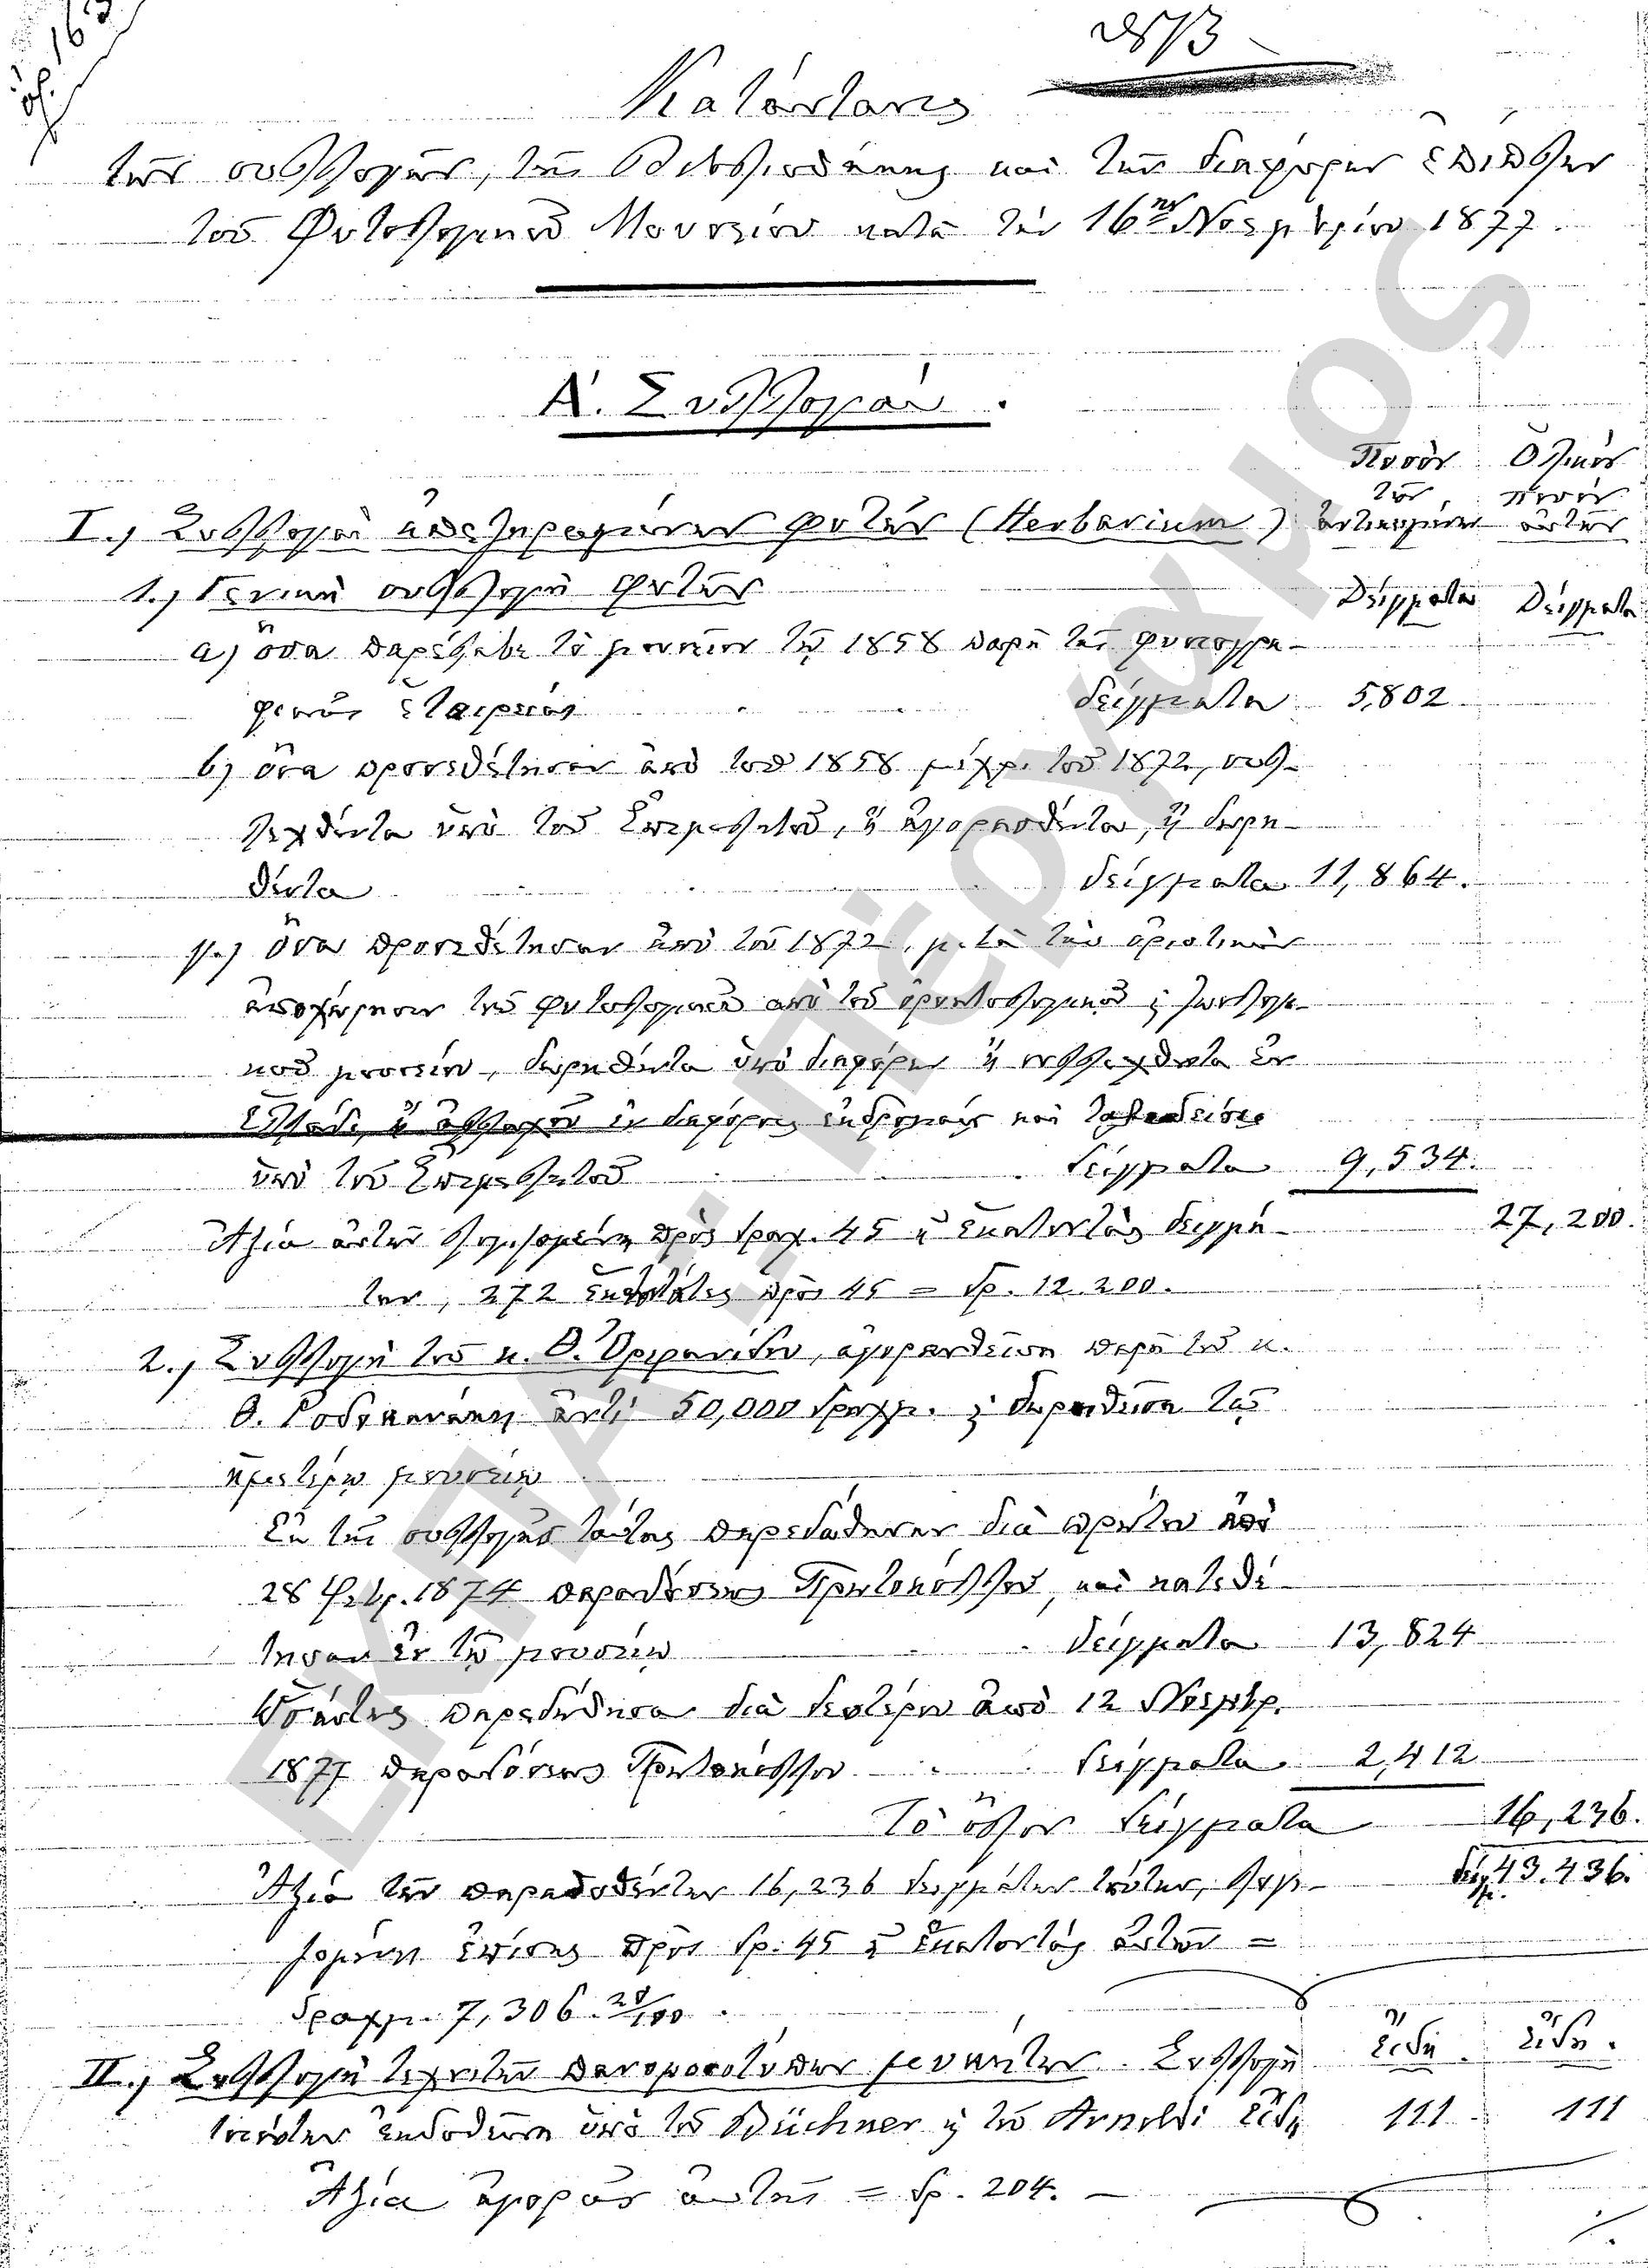 Κατάστασις
τῶν συλλογῶν, τῆς Βιβλιοθήκης καὶ τῶν διαφόρων ἐπίπλων
τοῦ Φυτολογικοῦ Μουσείου κατὰ τὴν 16ην Νοεμβρίου 1877.
Α'. Συλλογαί.
Ποσὸν Ὁλικὸν
τῶν ποσὸν
I., Συλλογαὶ ἀπεξηραμένων φυτῶν (Herbarium) αὐτῶν
1., Γενικὴ συλλογὴ φυτῶν Δείγματα Δείγματα
a) ὅσα παρέλαβε τὸ μουσεῖον τῷ 1858 παρὰ τῆς φυσιογρα-
φικῆς Ἑταιρείας δείγματα 5,802
b) ὅσα προσεθέτησαν ἀπὸ τοῦ 1858 μέχρι τοῦ 1872, συλ-
λεχθέντα ὑπὸ τοῦ Ἐπιμελητοῦ, ἢ ἀγορασθέντα, ἢ δωρη-
θέντα δείγματα 11,864.
γ.) ὅσα προσεθέτησαν ἀπὸ τοῦ 1872, μετὰ τὴν ὁριστικὴν
ἀποχώρησιν τοῦ φυτολογικοῦ ἀπὸ τοῦ ὀρυκτολογικοῦ ζωολογι-
κοῦ μουσείου, δωρηθέντα ὑπὸ διαφόρων ἢ συλλεχθέντα ἐν
Ἑλλάδι ἢ ἀλλαχοῦ ἐν διαφόροις ἐκδρομαῖς καὶ
ὑπὸ τοῦ Ἐπιμελητοῦ δείγματα 9,534.
Ἀξία αὐτῶν λογιζομένη πρὸς δραχ. 45 ἡ ἑκατοντὰς δειγμά- 27,200.
των, 272 ἑκατοντάδες πρὸς 45 = δρ. 12.200.
2., Συλλογὴ τοῦ κ. Θ. Ὀρφανίδου, ἀγορασθεῖσα παρὰ τοῦ κ.
Θ. Ροδοκανάκη ἀντὶ 50,000 δραχμ. δωρηθεῖσα τῷ
ἡμετέρῳ μουσείῳ
Ἐκ τῆς συλλογῆς ταύτης παρεδόθησαν διὰ πρώτου ἀπὸ
28 Φεβρ. 1874 παραδόσεως Πρωτοκόλλου, καὶ κατεθέ-
τησαν ἐν τῷ μουσείῳ δείγματα 13,824
Ὡσαύτως παρεδόθησαν διὰ δευτέρου ἀπὸ 12 Νοεμβρ.
1877 παραδόσεως Πρωτοκόλλου δείγματα 2,412
Τὸ ὅλον δείγματα 16,236.
Ἀξία τῶν παραδοθέντων 16,236 δειγμάτων τούτων, λογι- 43.436.
ζομένη ἐπίσης πρὸς δρ. 45 ἡ ἑκατοντὰς αὐτῶν =
δραχμ. 7,306.20/100.
II., Συλλογὴ τεχνητῶν μυκήτων. Συλλογὴ εἴδη. εἴδη.
τοιούτων ἐκδοθεῖσα ὑπὸ τοῦ Büchner ἢ τοῦ Arnoldi εἴδη 111 111
Ἀξία ἀγορᾶς αὐτῆς = δρ. 204. —
ΕΚΠΑ.: Πέργαμος